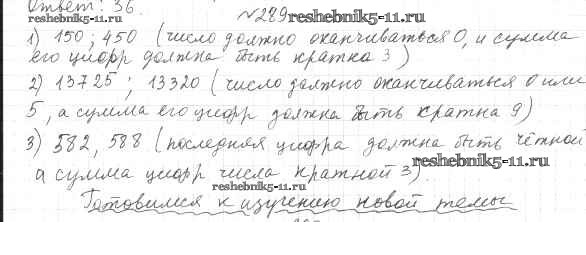 Ответ: 36.
№289 reshebnik5-11.ru
1) 150; 450 (число должно оканчиваться 0, и сумма
его цифр должна быть кратна 3)
2) 13725; 13320 (число должно оканчиваться 0 или
5, а сумма его цифр должна быть кратна 9)
3) 582, 588 (последняя цифра должна быть чётной
reshebnik5-11.ru
а сумма цифр числа кратной 3).
reshebnik5-11.ru
Готовимся к изучению новой темы